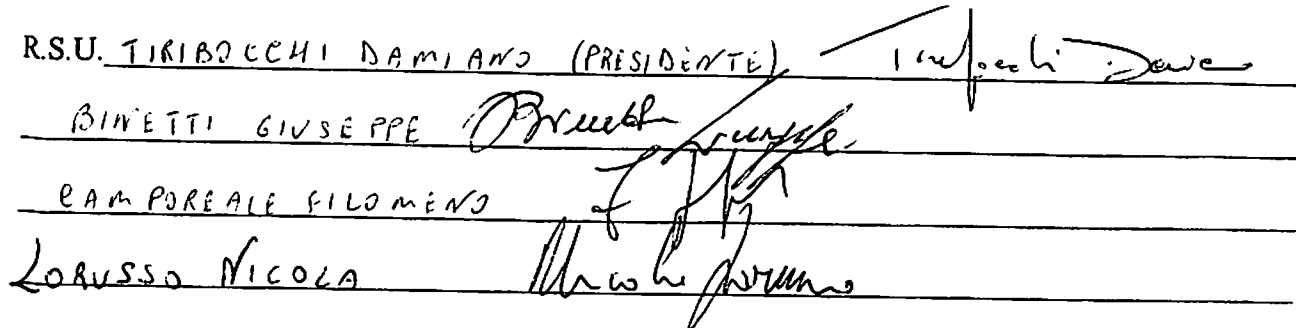 R.S.U. TIRIBOCCHI DAMIANO (PRESIDENTE) Tiribocchi Damiano
BINETTI GIUSEPPE Binetti Giuseppe
CAMPOREALE FILOMENO
LORUSSO NICOLA Nicola Lorusso